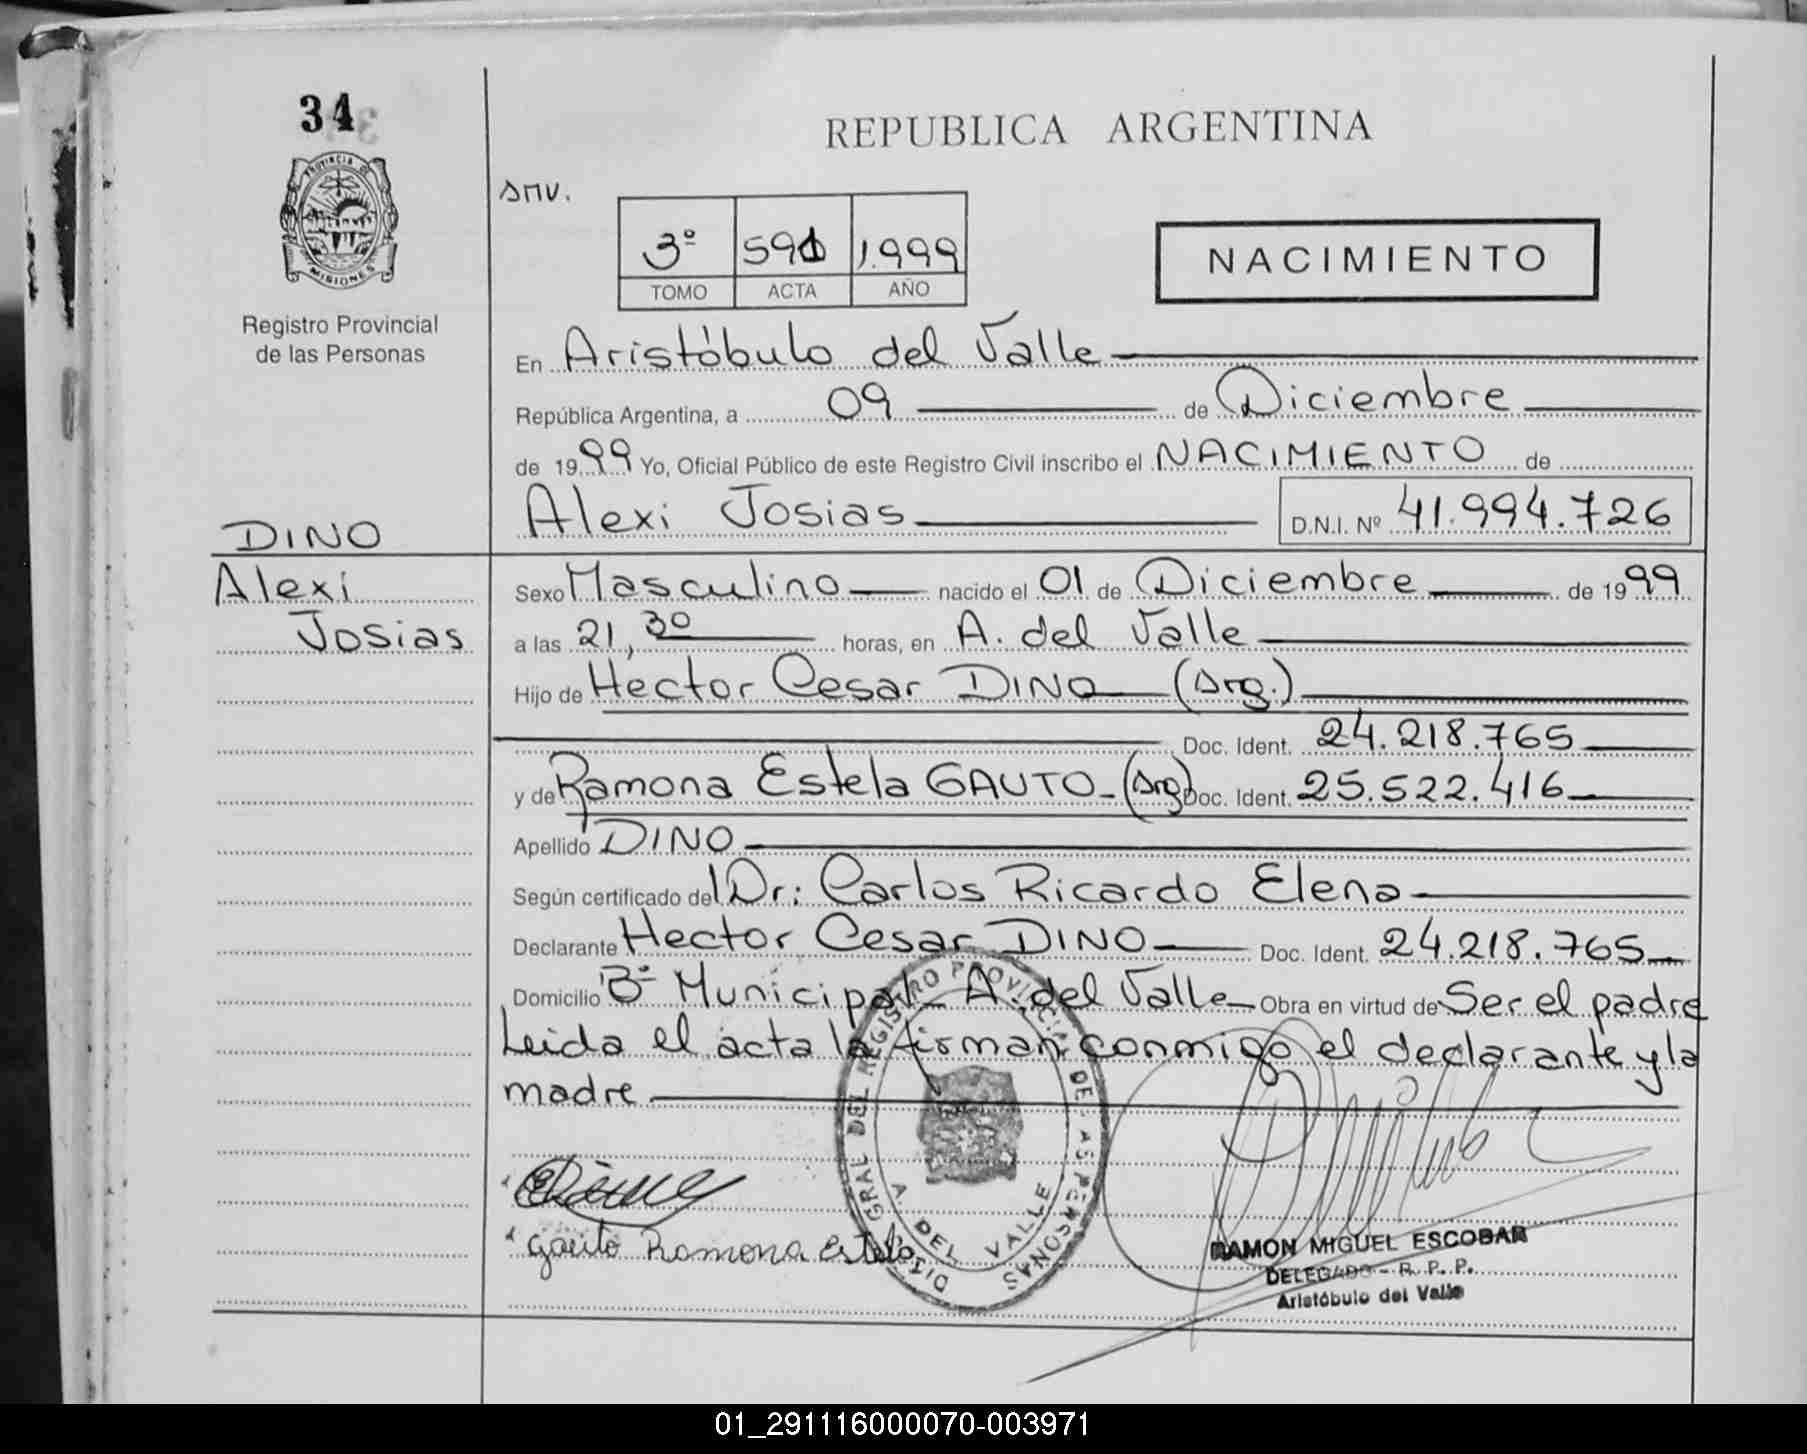 34
PROVINCIA DE
MISIONES
Registro Provincial
de las Personas
REPUBLICA ARGENTINA
3º 591 1.999
TOMO ACTA AÑO
NACIMIENTO
En Aristóbulo del Valle
República Argentina, a 09 de Diciembre
de 1999 Yo, Oficial Público de este Registro Civil inscribo el NACIMIENTO de
Alexi Josias D.N.I. Nº 41.994.726
DINO
Alexi
Josias
Sexo Masculino nacido el 01 de Diciembre de 1999
a las 21,30 horas, en A. del Valle
Hijo de Hector Cesar DINO (Arg.)
Doc. Ident. 24.218.765
y de Ramona Estela GAUTO (Arg) Doc. Ident. 25.522.416
Apellido DINO
Según certificado del Dr: Carlos Ricardo Elena
Declarante Hector Cesar DINO Doc. Ident. 24.218.765
Domicilio Bº Municipal A. del Valle Obra en virtud de Ser el padre
Leida el acta la firman conmigo el declarante y la
madre
Gauto Ramona Estela
REGISTRO PROVINCIAL DE LAS PERSONAS
A. DEL VALLE
RAMON MIGUEL ESCOBAR
DELEGADO - R. P. P.
Aristóbulo del Valle
01_291116000070-003971